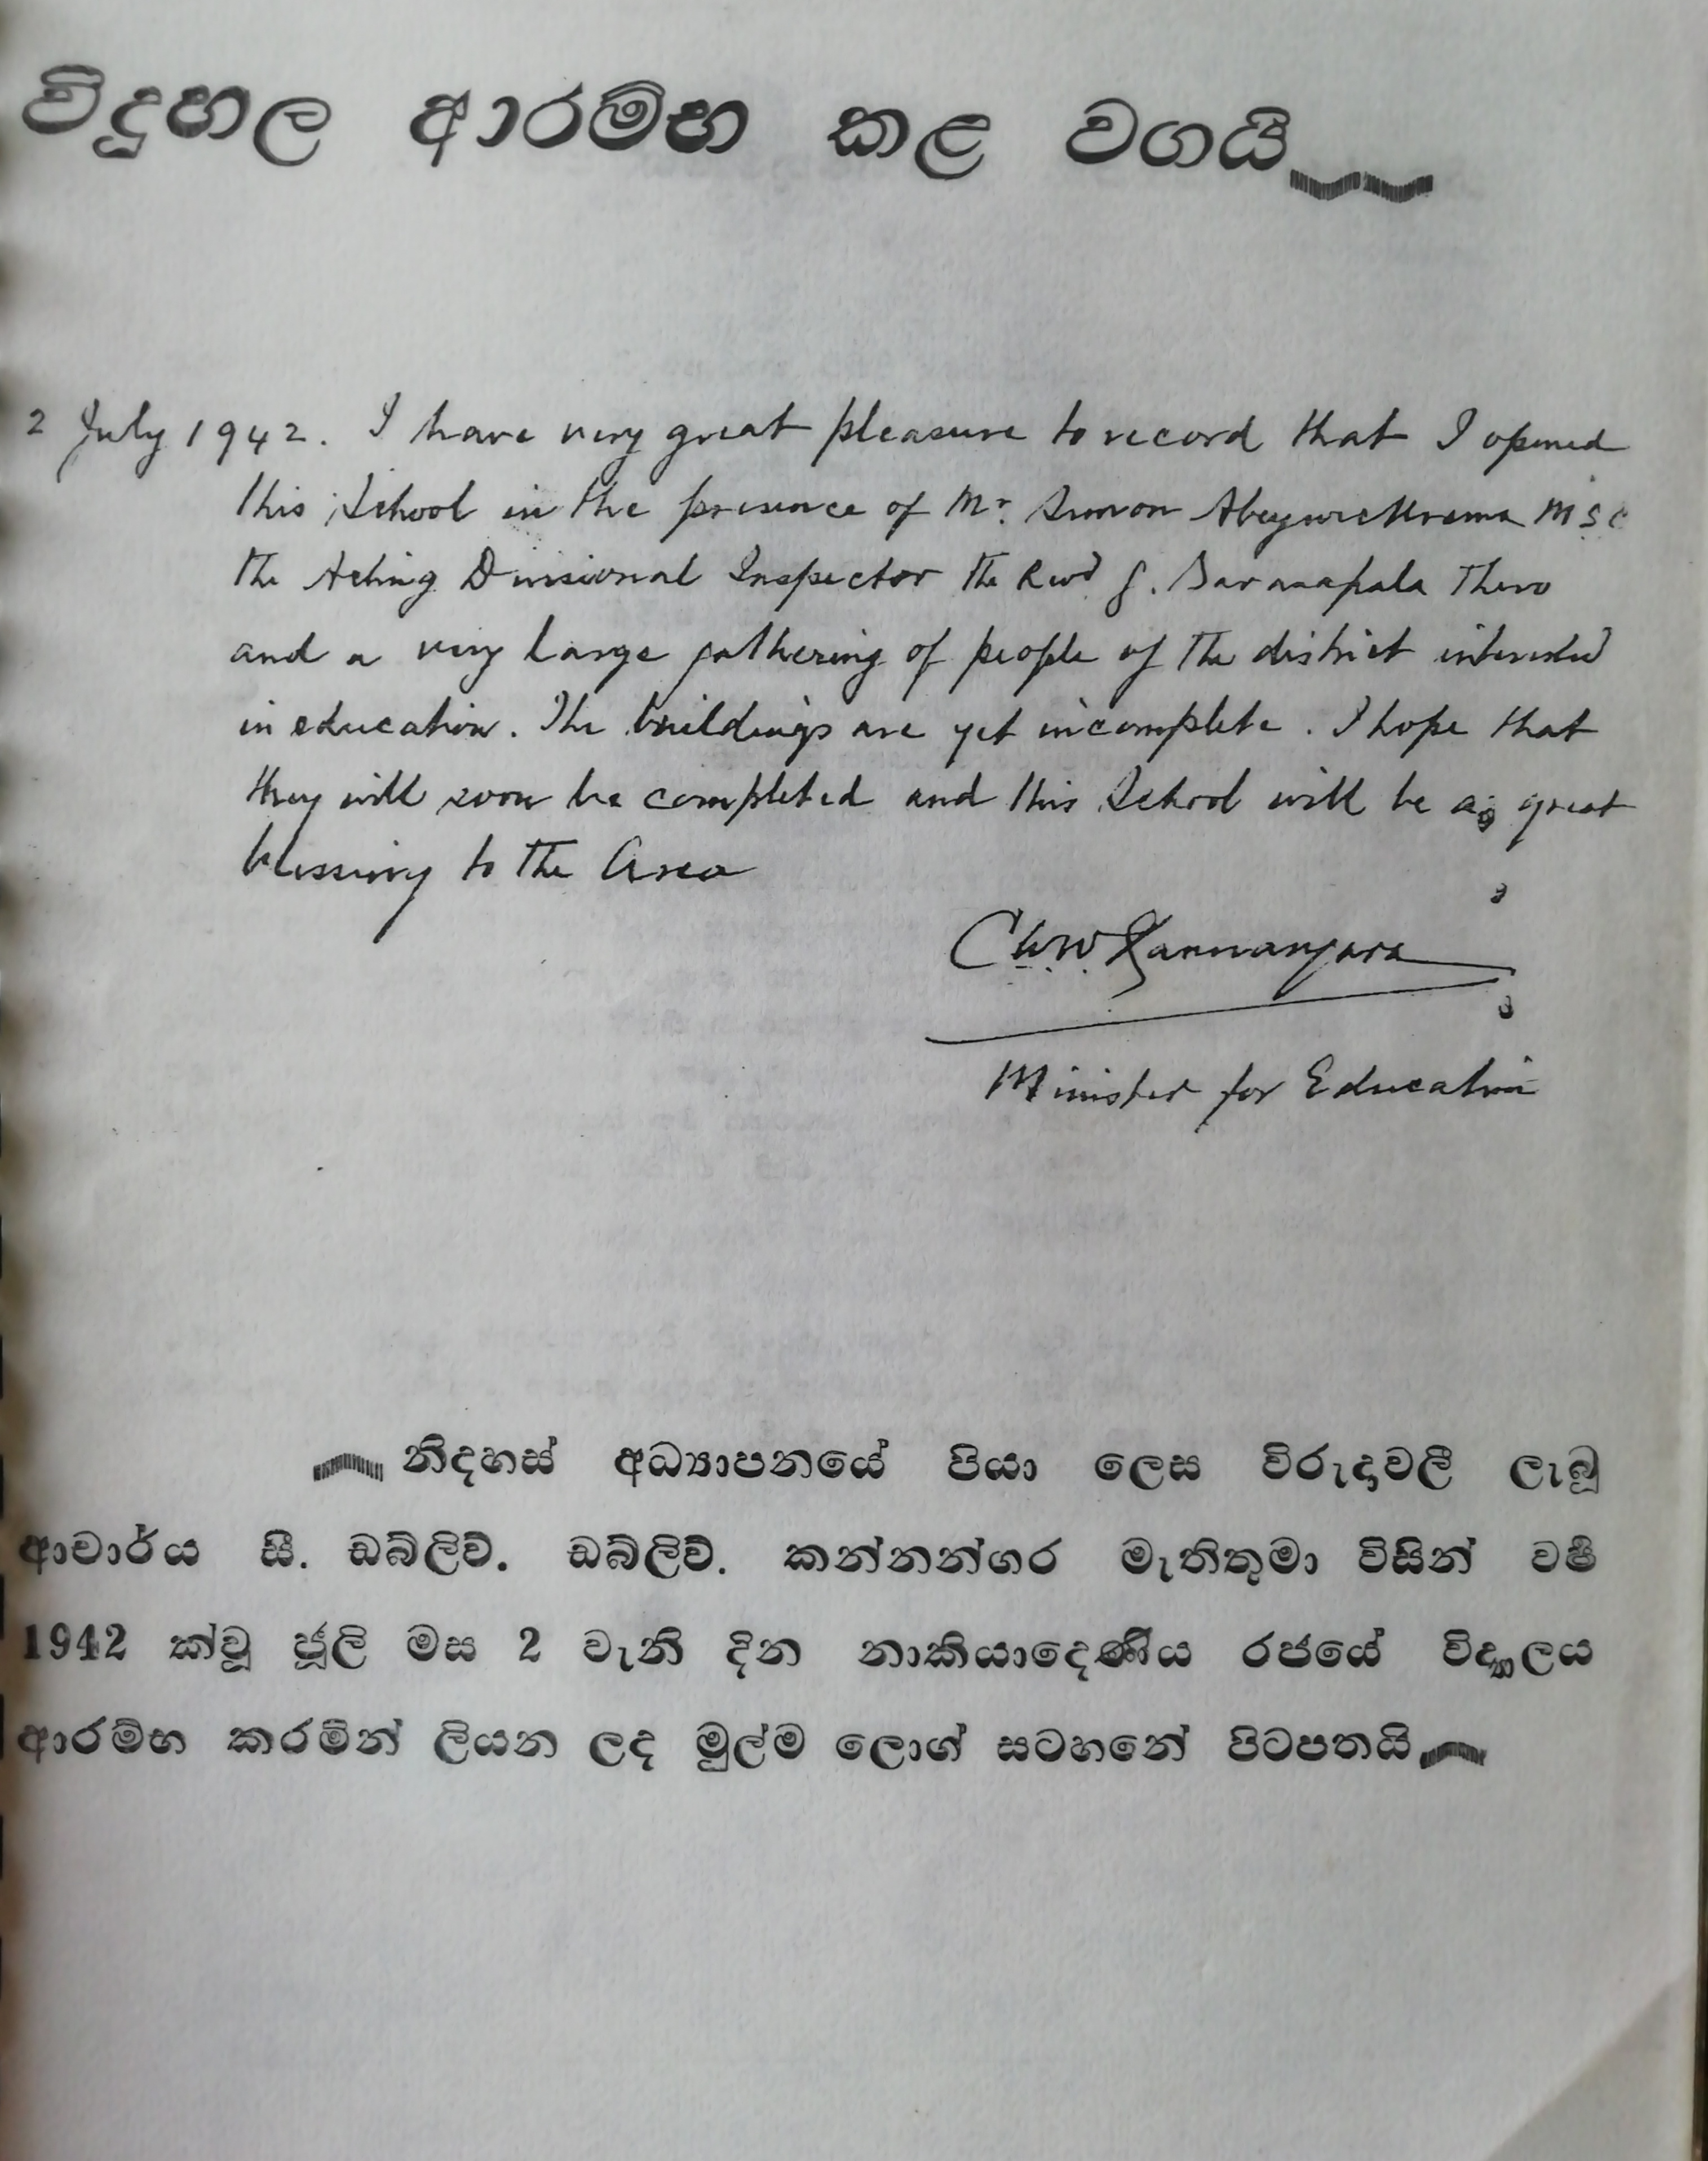 විදුහල ආරම්භ කළ වගයි
2 July 1942. I have very great pleasure to record that I opened
this School in the presence of Mr. Simon Abeywickrema MSC
the Acting Divisional Inspector the Revd G. Saranapala Thero
and a very large gathering of people of the district interested
in education. The buildings are yet incomplete. I hope that
they will soon be completed and this School will be a great
blessing to the Area
C.W.W. Kannangara
Minister for Education
නිදහස් අධ්‍යාපනයේ පියා ලෙස විරුදාවලී ලැබූ
ආචාර්ය සී. ඩබ්ලිව්. ඩබ්ලිව්. කන්නන්ගර මැතිතුමා විසින් වර්ෂ
1942 ක්වූ ජූලි මස 2 වැනි දින නාකියාදෙණිය රජයේ විද්‍යාලය
ආරම්භ කරමින් ලියන ලද මුල්ම ලොග් සටහනේ පිටපතයි